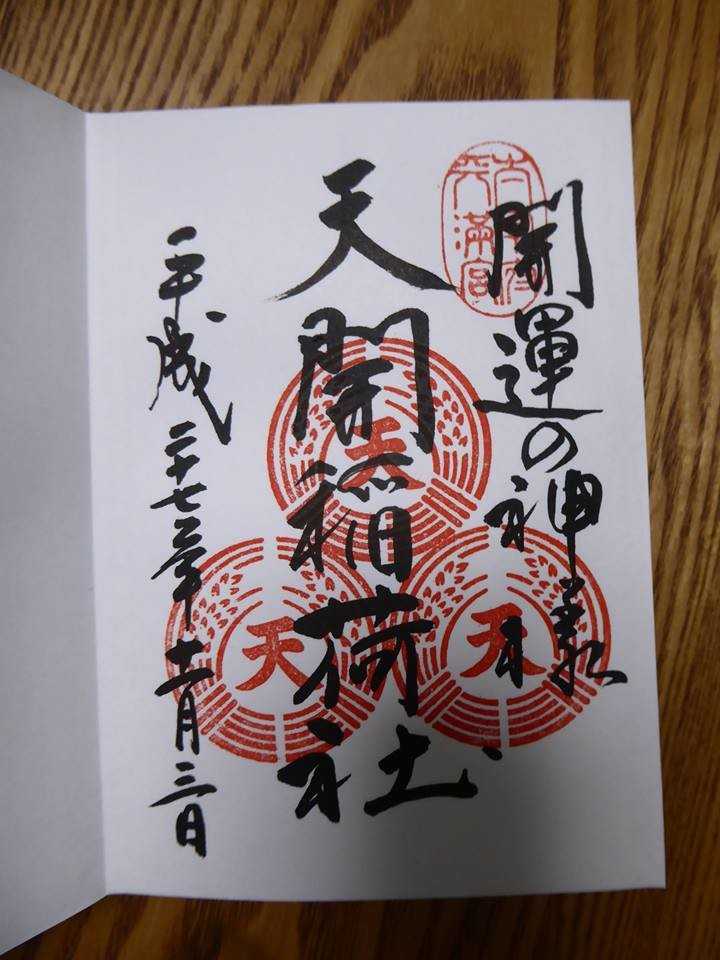 開運の神様
太宰府天満宮
天開稲荷社
天
天
天
平成二十七年十一月三日